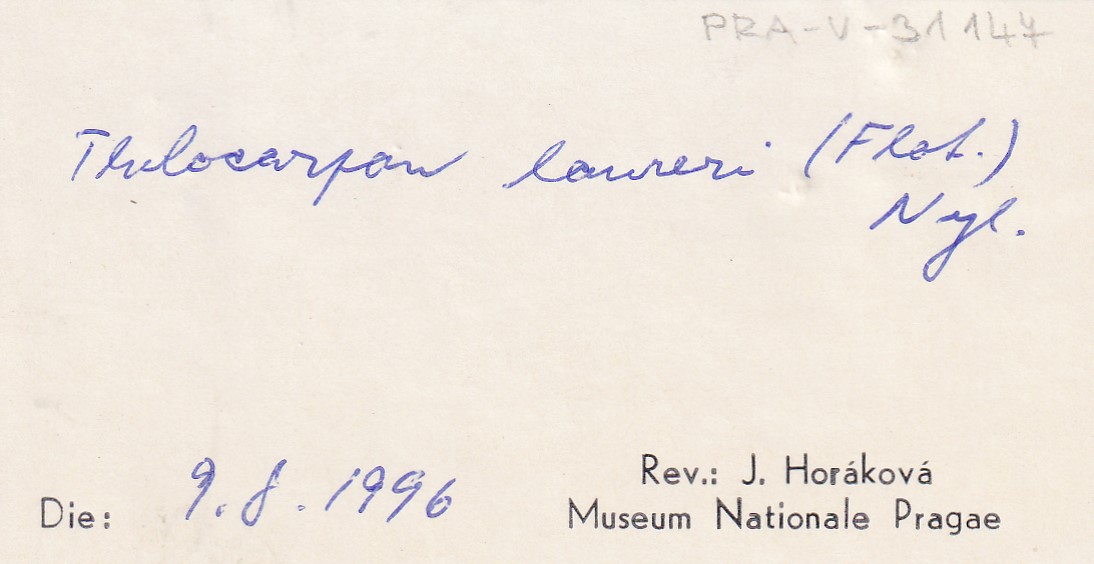 PRA-V-31147
Thelocarpon laureri (Flot.)
Nyl.
Die: 9.8.1996
Rev.: J. Horáková
Museum Nationale Pragae